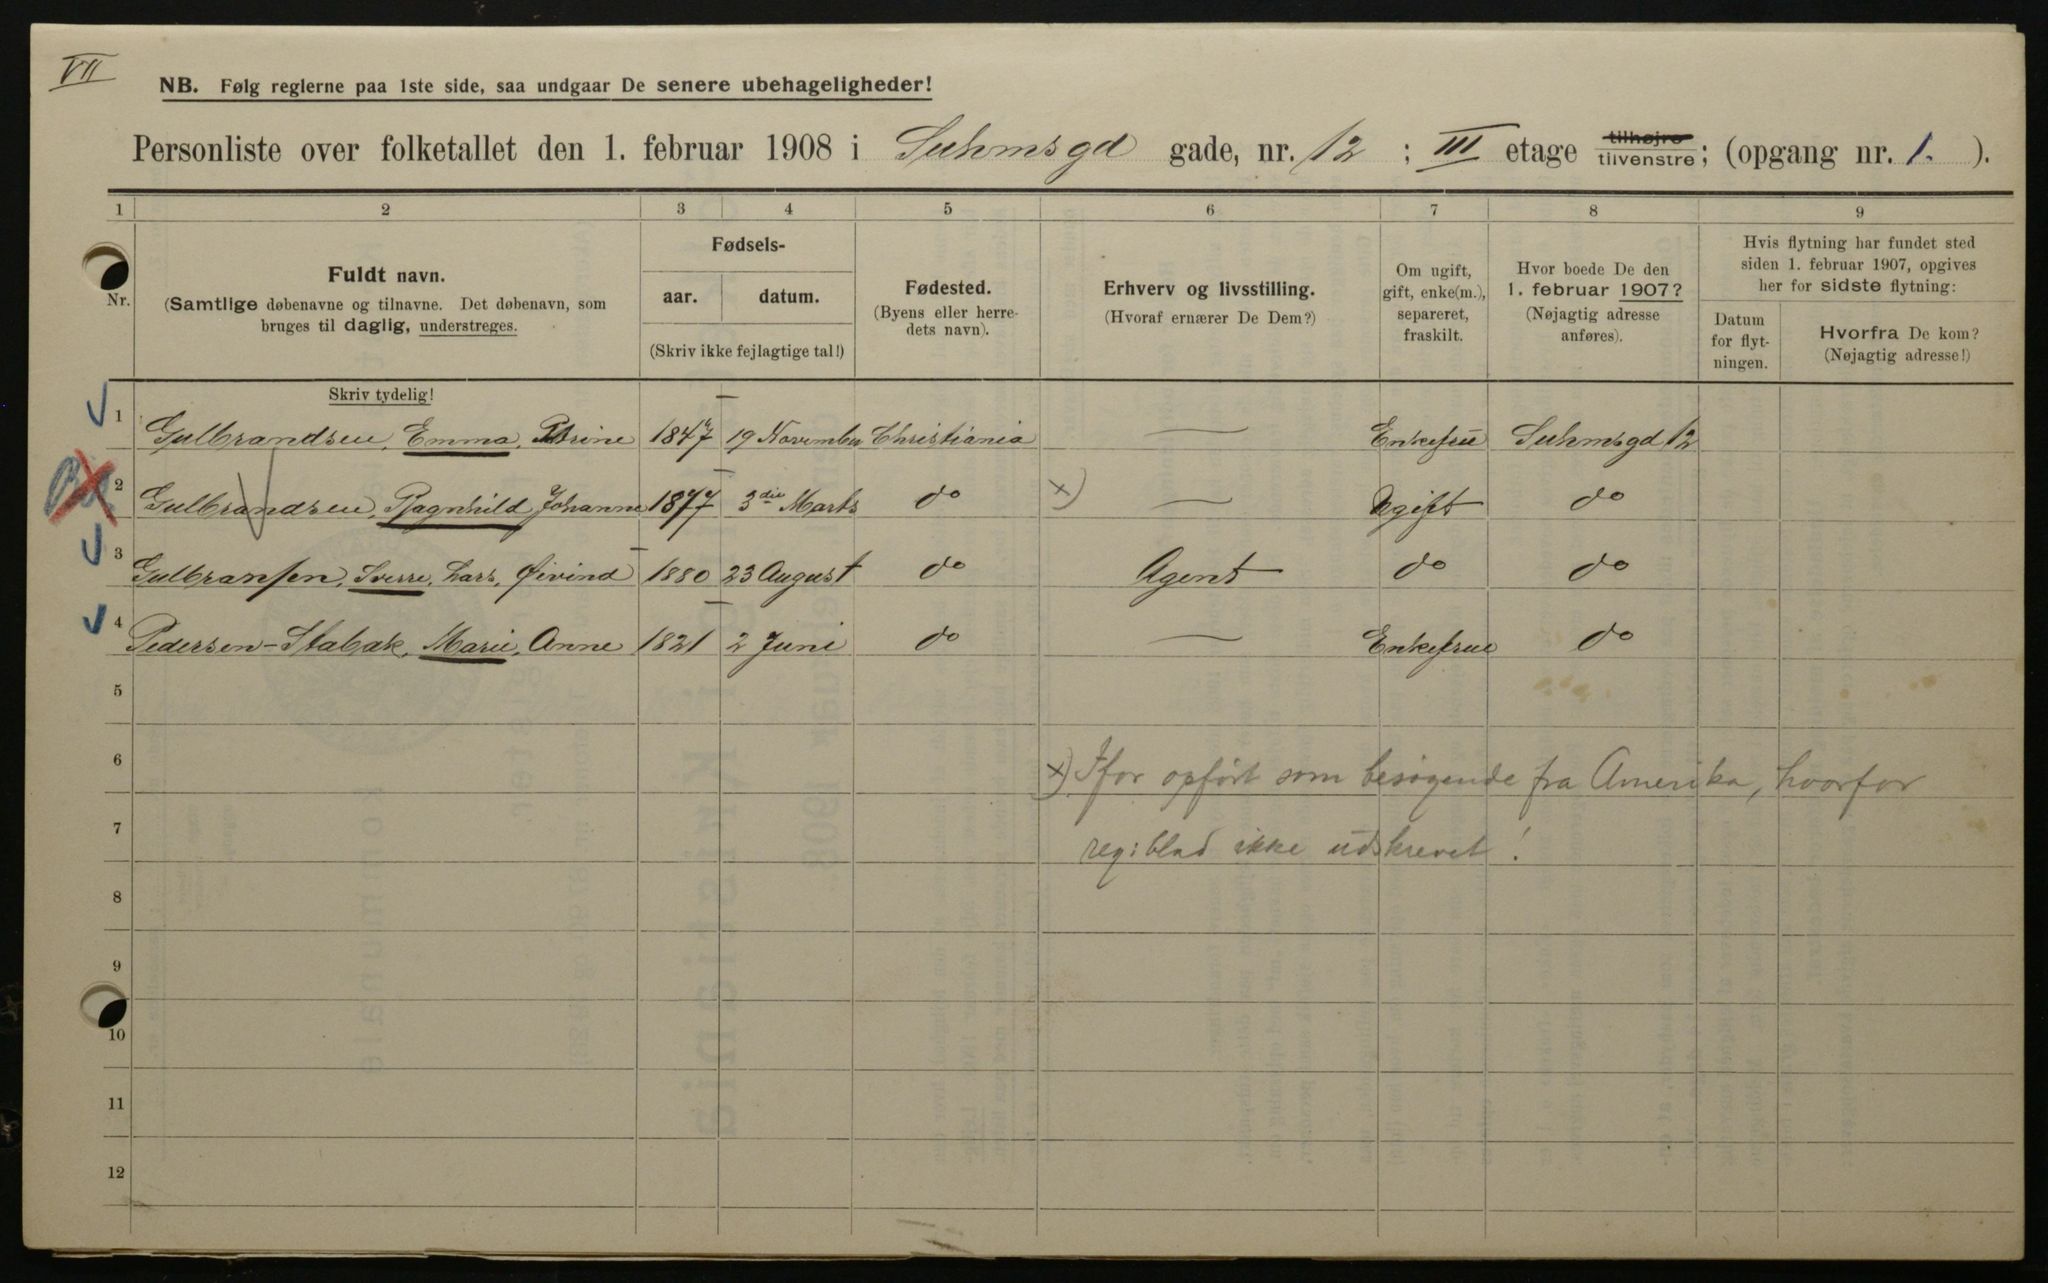 VII
NB. Følg reglerne paa 1ste side, saa undgaar De senere ubehageligheder!
Personliste over folketallet den 1. februar 1908 i Suhmsgd gade, nr. 12 ; III etage tilhøjre tilvenstre; (opgang nr. 1. ).
1 2 3 4 5 6 7 8 9
Nr.
Fuldt navn.
(Samtlige døbenavne og tilnavne. Det døbenavn, som
bruges til daglig, understreges.
Fødsels-
aar. datum.
(Skriv ikke fejlagtige tal!)
Fødested.
(Byens eller herre-
dets navn).
Erhverv og livsstilling.
(Hvoraf ernærer De Dem?)
Om ugift,
gift, enke(m.),
separeret,
fraskilt.
Hvor boede De den
1. februar 1907?
(Nøjagtig adresse
anføres).
Hvis flytning har fundet sted
siden 1. februar 1907, opgives
her for sidste flytning:
Datum
for flyt-
ningen.
Hvorfra De kom?
(Nøjagtig adresse!)
Skriv tydelig!
1 Gulbrandsen, Emma, Trine 1847 19 November Christiania — Enkefrue Suhmsgd 12
2 Gulbrandsen, Ragnhild Johanne 1877 3die Marts do x) — Ugift do
3 Gulbransen, Sverre, Lars, Øivind 1880 23 August do Agent do do
4 Pedersen-Stabak, Marie, Anne 1821 2 Juni do — Enkefrue do
5
6 x) Ifor opført som besøgende fra Amerika, hvorfor
7 reg:blad ikke udskrevet!
8
9
10
11
12